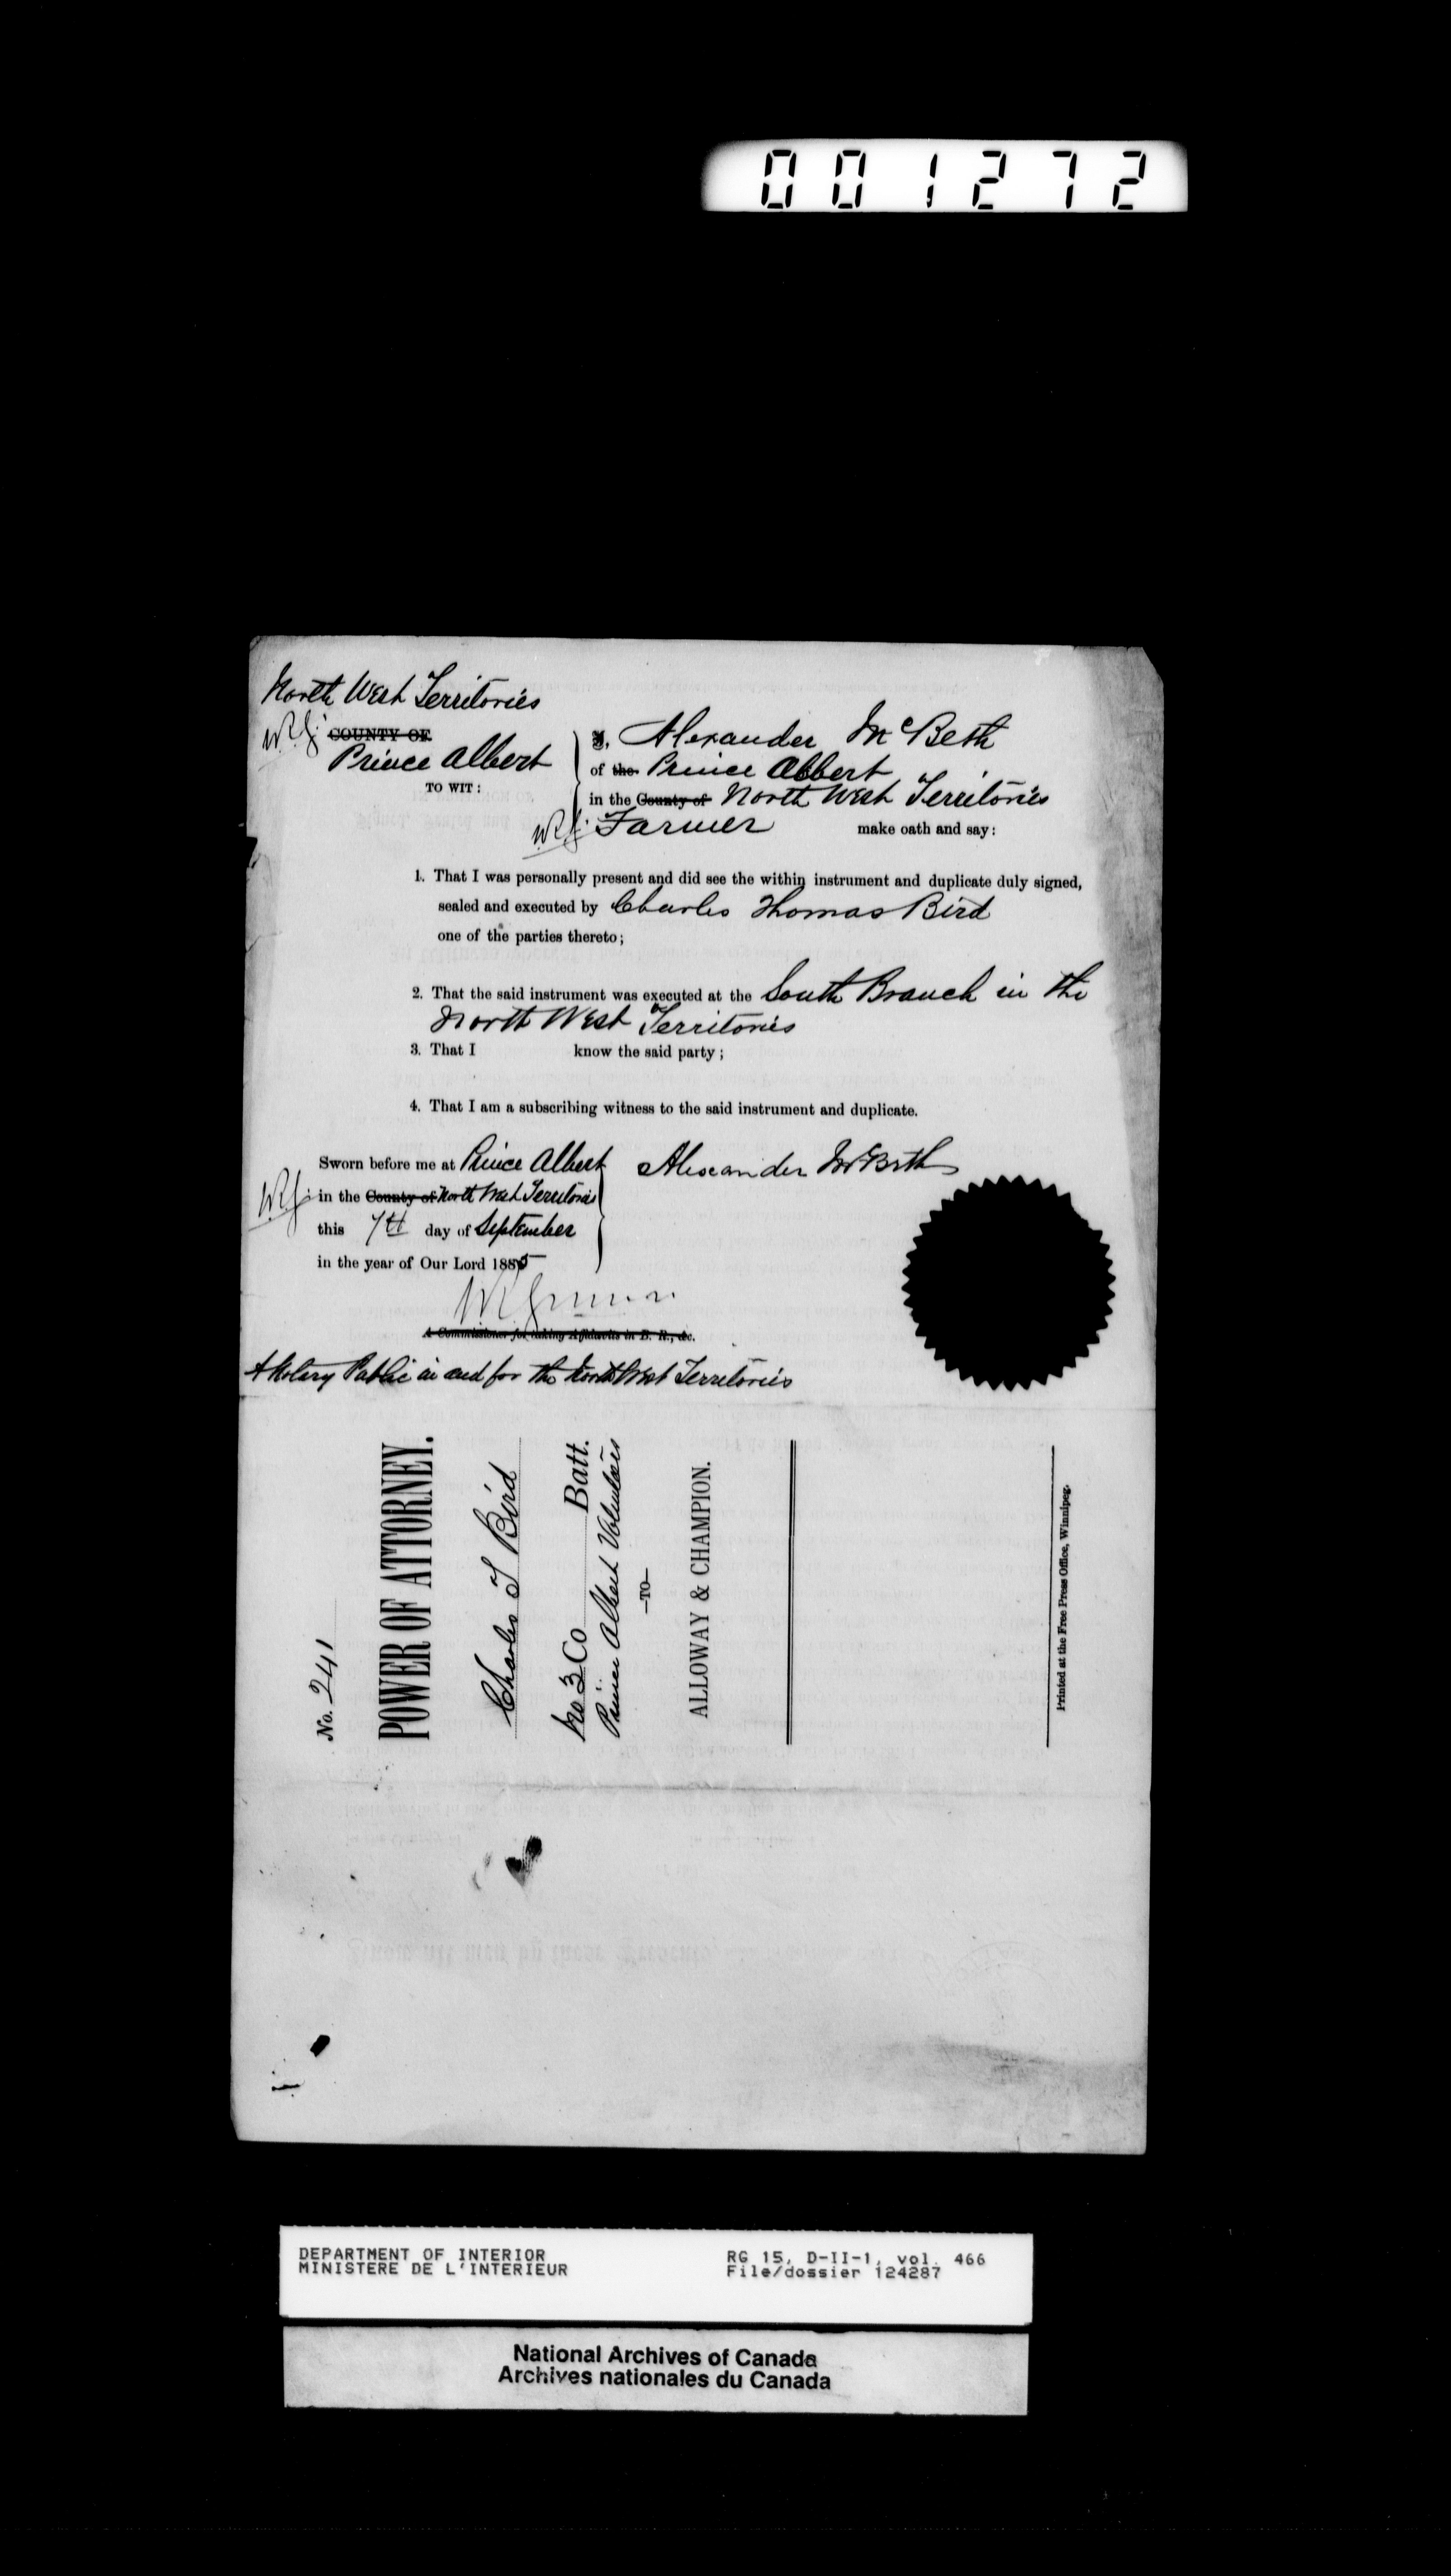 001272
North West Territories
W.R.G. COUNTY OF
Prince Albert
TO WIT:
I, Alexander McBeth
of the Prince Albert
in the County of North West Territories
W.R.G. Farmer make oath and say:
1. That I was personally present and did see the within instrument and duplicate duly signed,
sealed and executed by Charles Thomas Bird
one of the parties thereto;
2. That the said instrument was executed at the South Branch in the
North West Territories
3. That I know the said party;
4. That I am a subscribing witness to the said instrument and duplicate.
Sworn before me at Prince Albert
W.R.G. in the County of North West Territories
this 7th day of September
in the year of Our Lord 1885
Alexander McBeth
A Commissioner for taking Affidavits in B. R., &c.
A Notary Public in and for the North West Territories
No. 241
POWER OF ATTORNEY.
Charles T Bird
No 3 Co Batt.
Prince Albert Volunteers
—TO—
ALLOWAY & CHAMPION.
Printed at the Free Press Office, Winnipeg.
DEPARTMENT OF INTERIOR
MINISTERE DE L'INTERIEUR
RG 15, D-II-1, vol. 466
File/dossier 124287
National Archives of Canada
Archives nationales du Canada